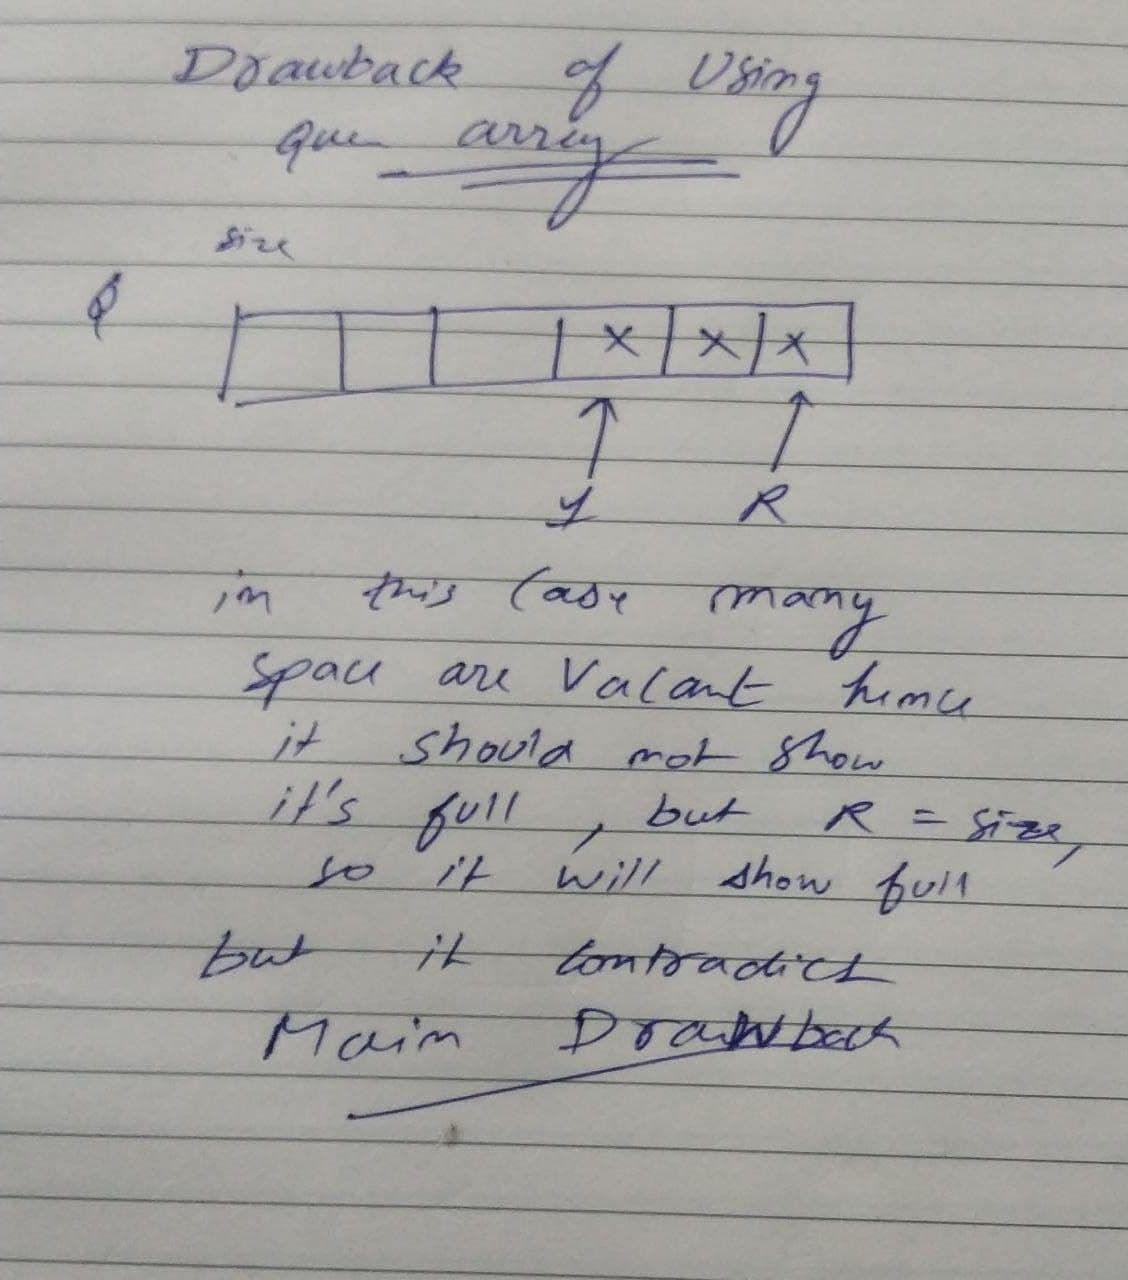 Drawback of Using
que array
size
Q
x x x
R
in this case many
space are vacant hence
it should not show
it's full, but R = size,
so it will show full
but it contradict
Main Drawback